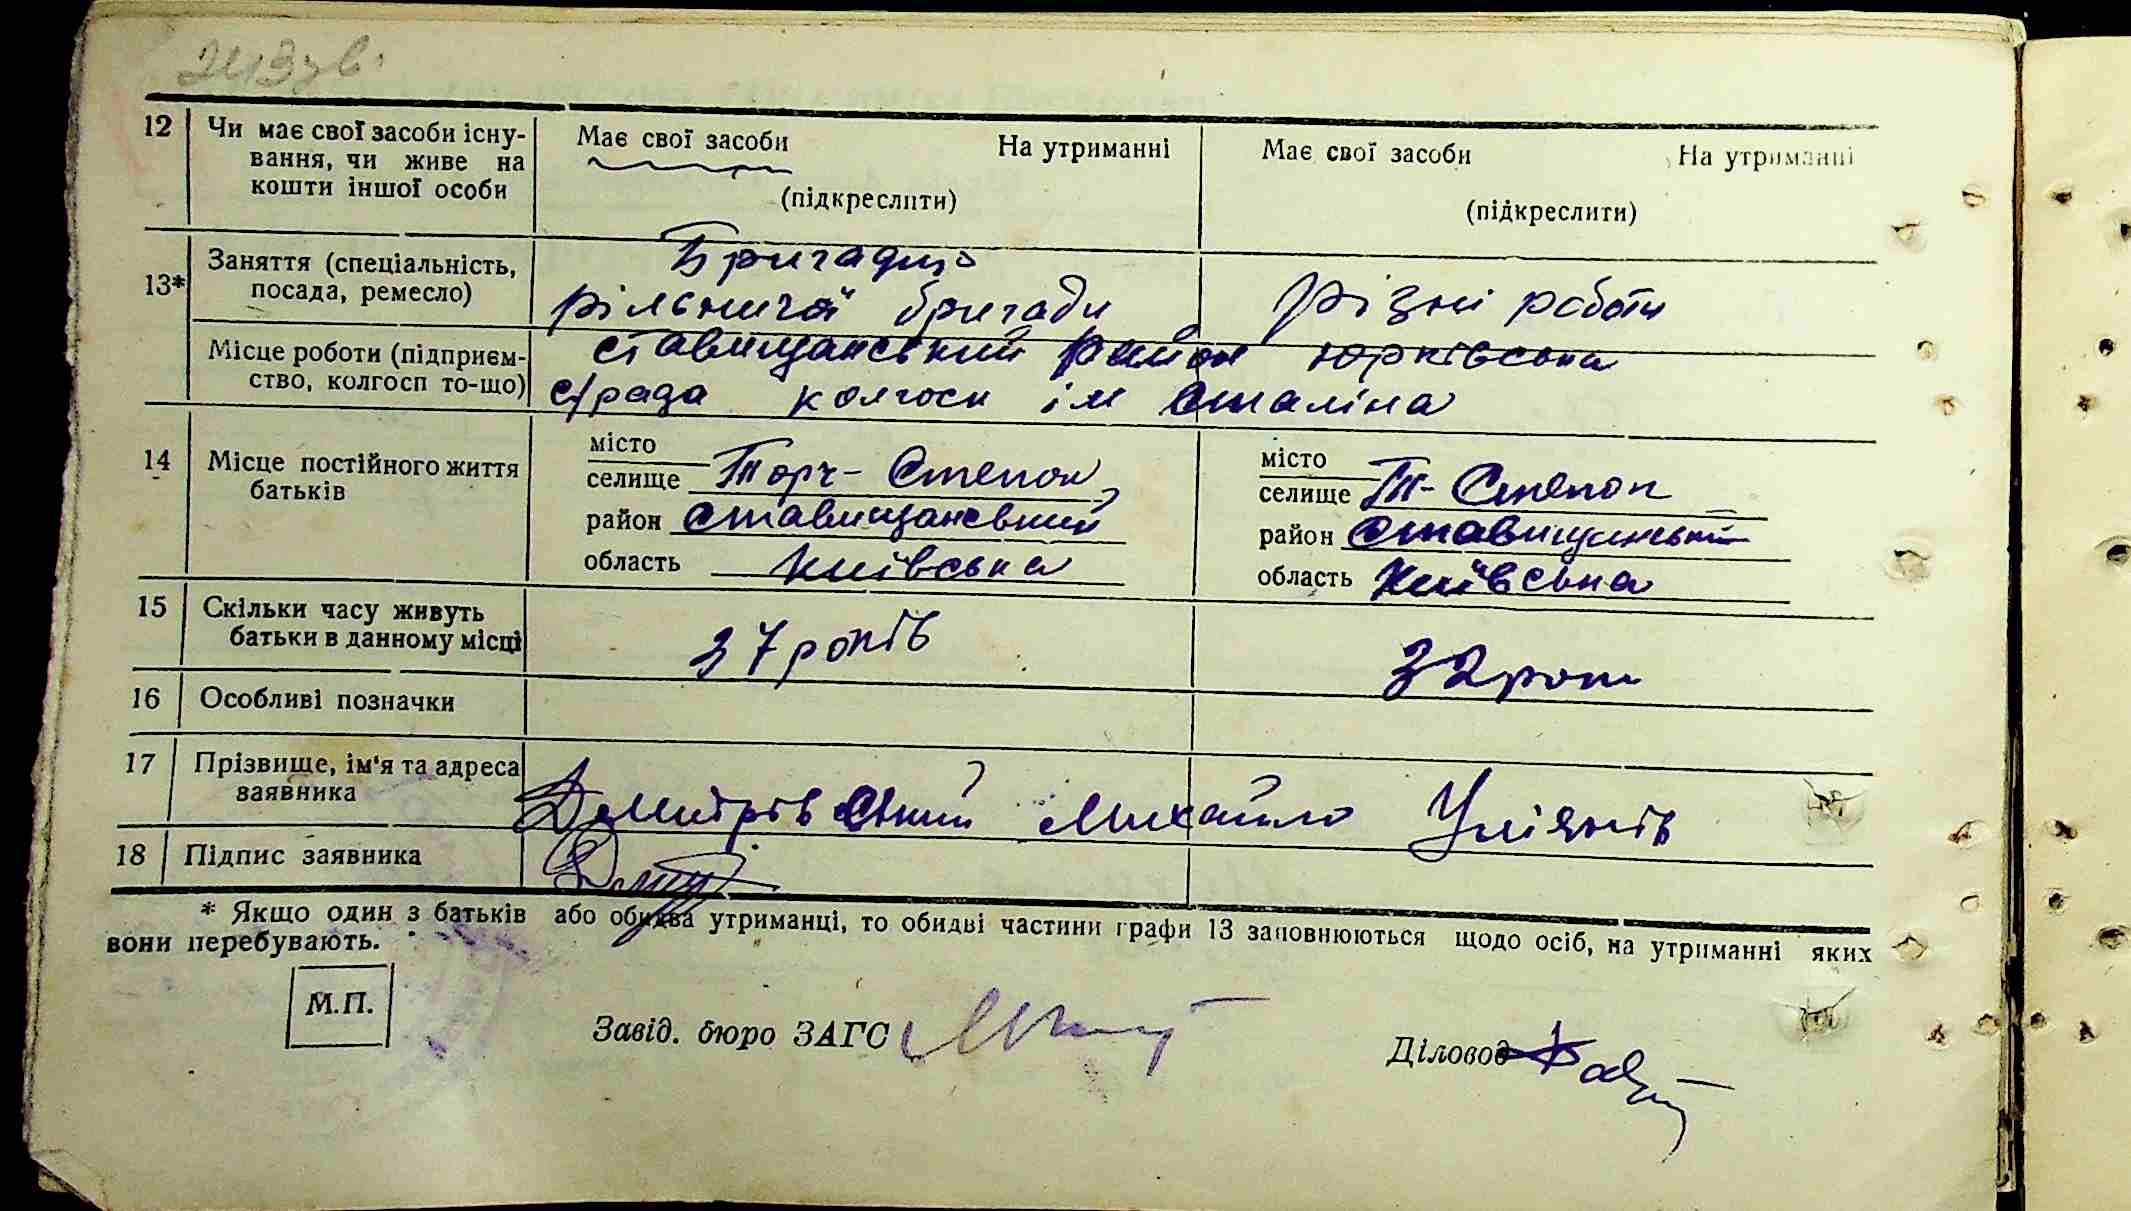 243зв.
12 Чи має свої засоби існу- Має свої засоби На утриманні Має свої засоби На утриманні
вання, чи живе на
кошти іншої особи (підкреслити) (підкреслити)
13* Заняття (спеціальність, Бригадир
посада, ремесло) рільничої бригади різні роботи
Місце роботи (підприєм- Ставищанський район Юрківська
ство, колгосп то-що) с/рада колгосп ім Сталіна
14 Місце постійного життя місто місто
батьків селище Торч-Степок селище Т-Степок
район Ставищанський район Ставищанський
область Київська область Київська
15 Скільки часу живуть
батьки в данному місці 37 років 32 роки
16 Особливі позначки
17 Прізвище, ім'я та адреса
заявника Дмитрівський Михайло Улянів
18 Підпис заявника
* Якщо один з батьків або обидва утриманці, то обидві частини графи 13 заповнюються щодо осіб, на утриманні яких
вони перебувають.
М.П.
Завід. бюро ЗАГС
Діловод